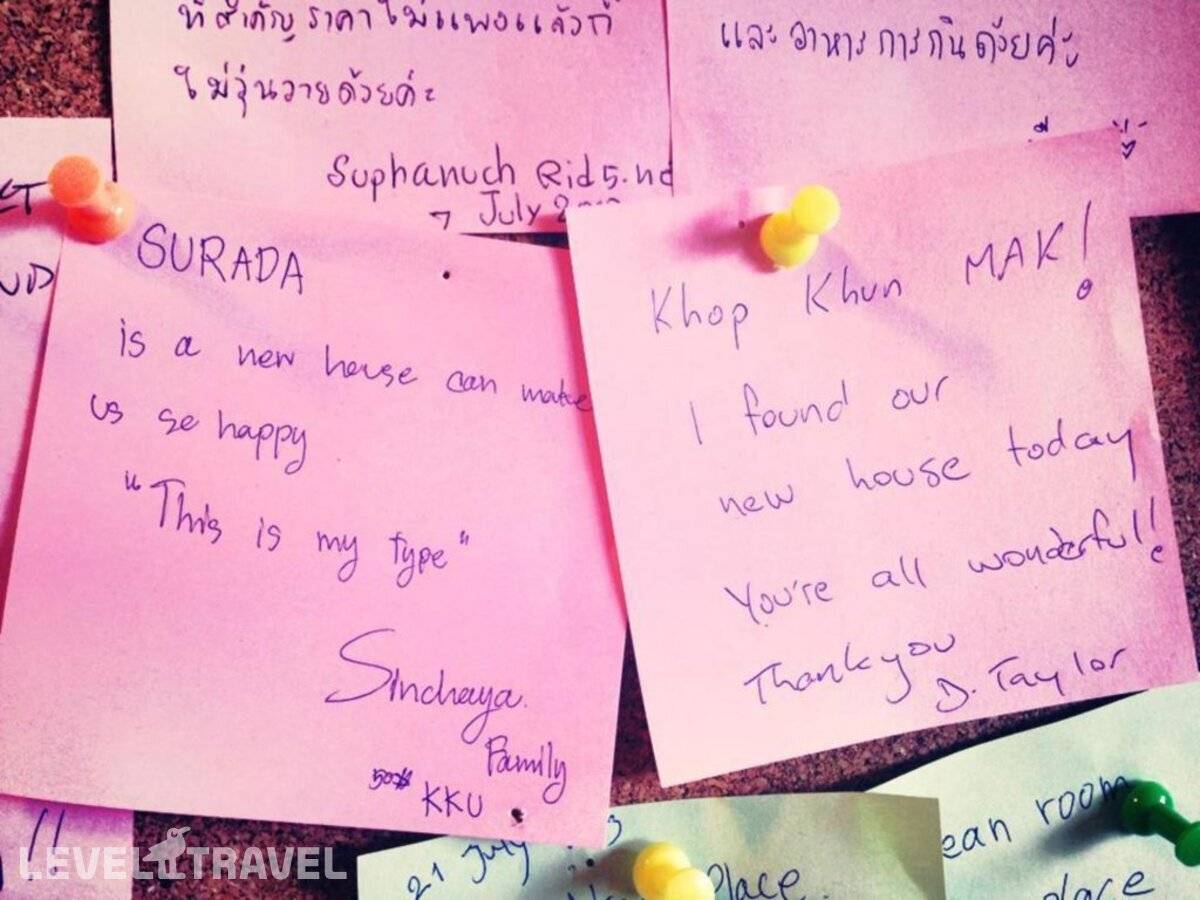 ที่สำคัญ ราคาไม่แพงแล้วก็
ไม่วุ่นวายด้วยค่ะ
Suphanuch
7 July
และอาหารการกินด้วยค่ะ
SURADA
is a new house can make
us so happy
"This is my type"
Sinchaya
Family
KKU
Khop Khun MAK!
I found our
new house today
You're all wonderful!
Thankyou
D. Taylor
!!
21 July
Place.
room
place
LEVEL TRAVEL